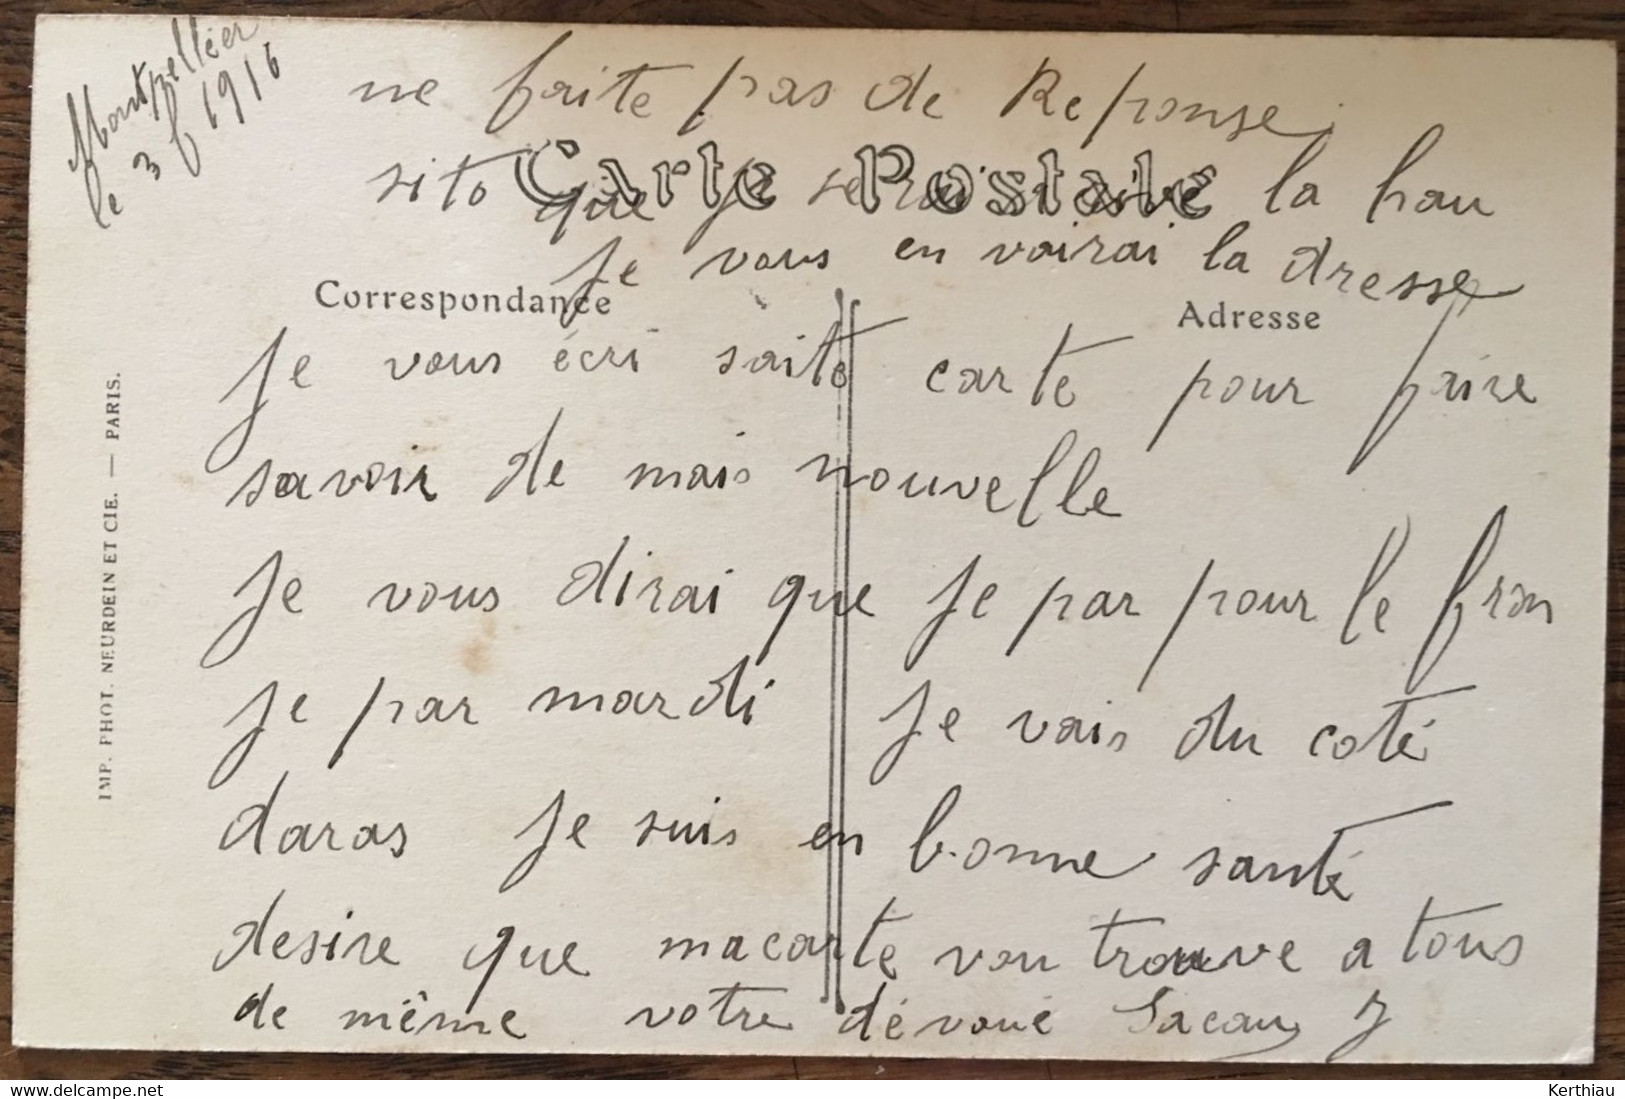 Montpellier
le 3 f 1916
ne faite pas de Reponse
sito que je serai arive la hau
Carte Postale
je vous en vairai la dresse
Correspondance
Adresse
Je vous écri saite carte pour faire
savoir de mais nouvelle
Je vous dirai que je par pour le fron
je par mardi je vais du coté
daras je suis en bonne santé
desire que ma carte vou trouve a tous
de même votre dévoué Sacau J
IMP. PHOT. NEURDEIN ET CIE. — PARIS.
www.delcampe.net
Kerthiau